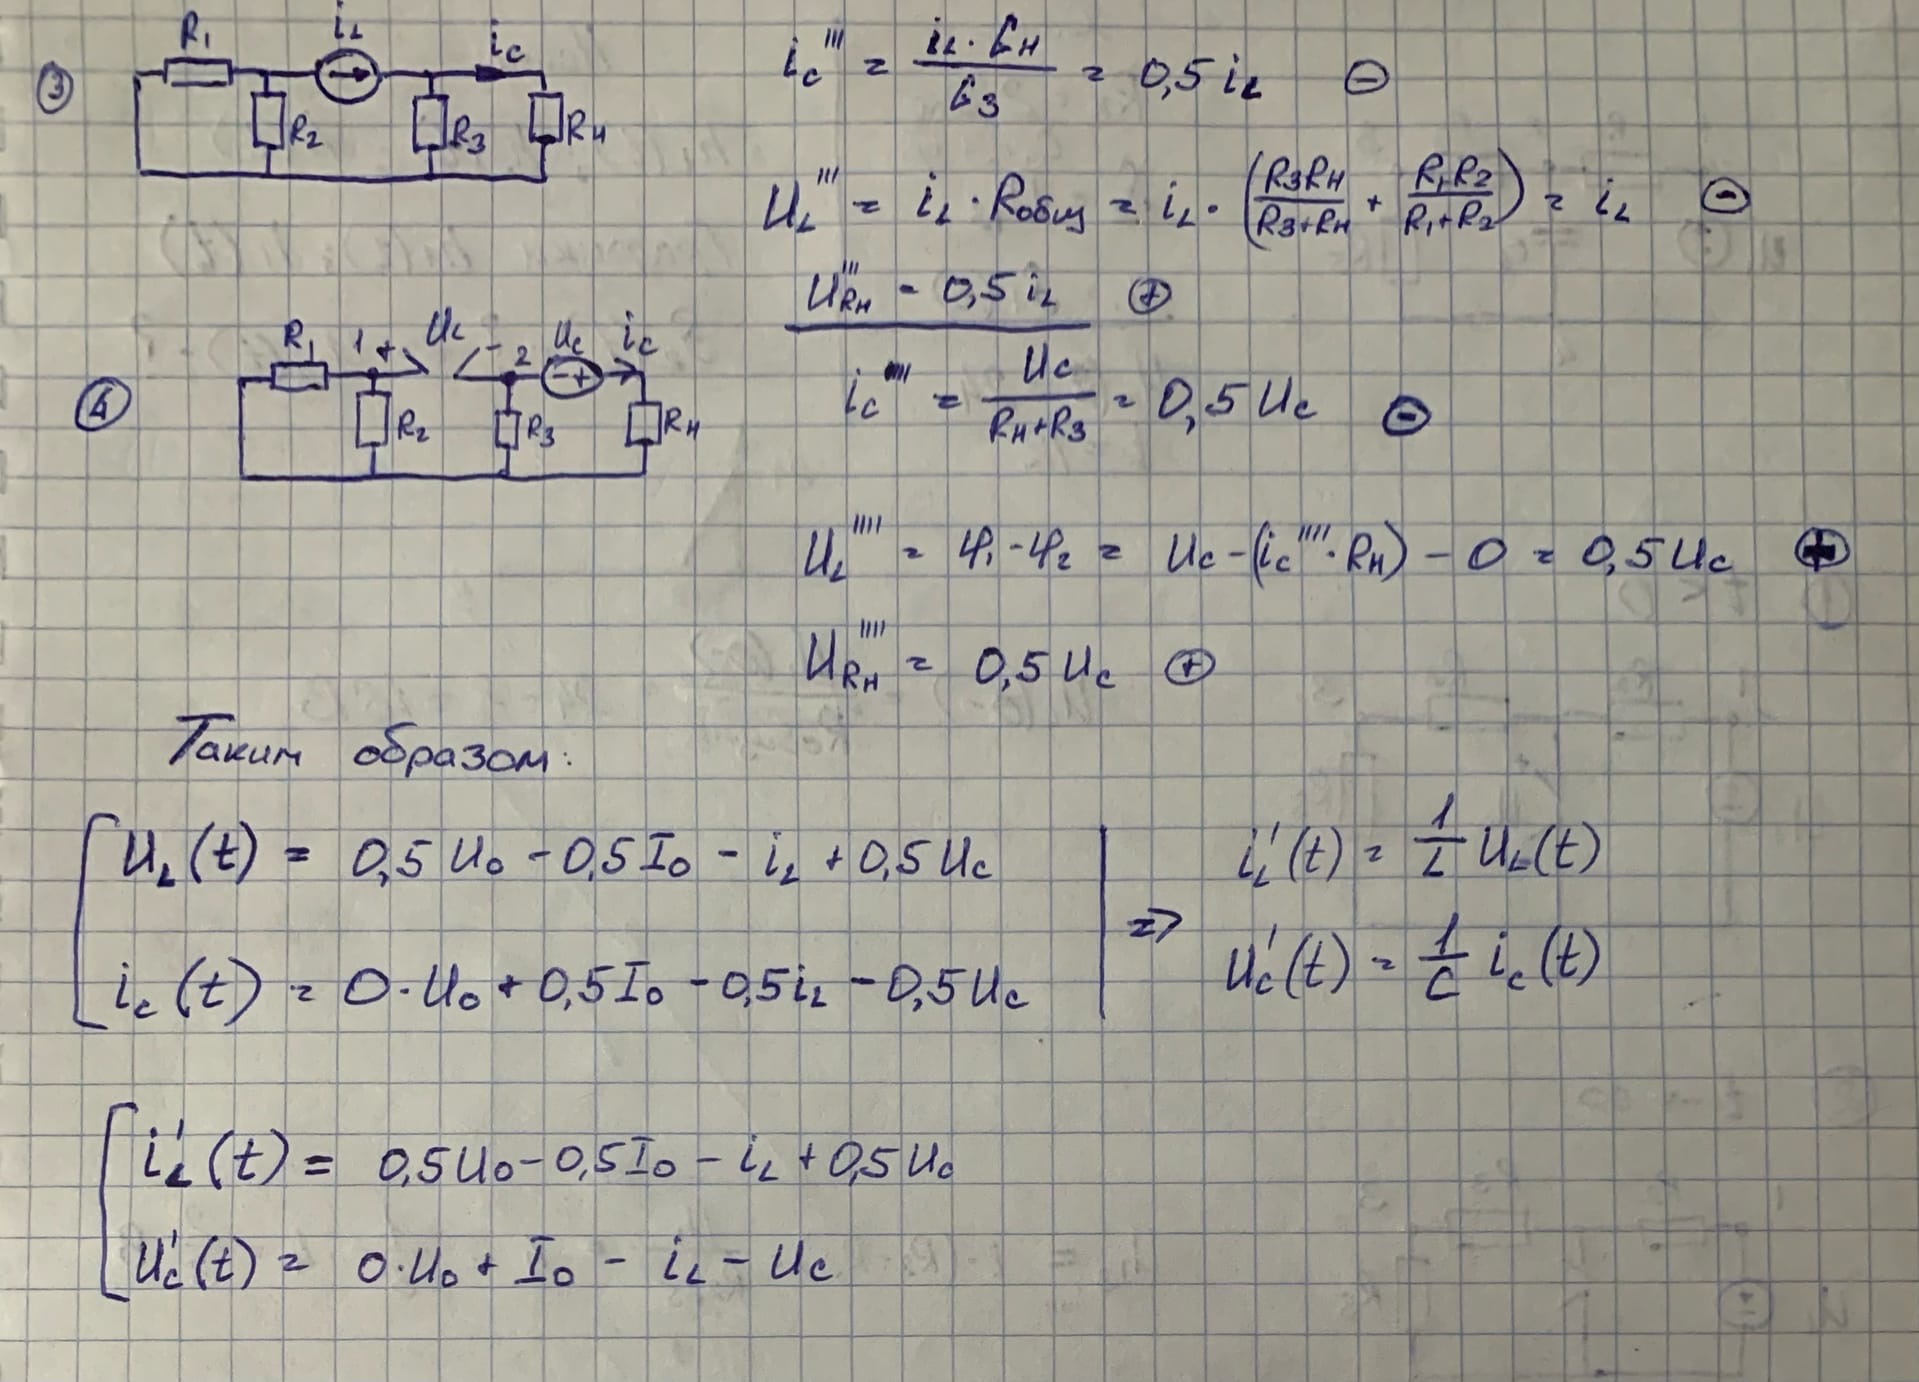 ③ R₁ i_L i_c R₂ R₃ R_H
i_c''' = (i_L · G_H) / G_3 = 0,5 i_L ⊖
U_L''' = i_L · R_общ = i_L · (R₃R_H / (R₃+R_H) + R₁R₂ / (R₁+R₂)) = i_L ⊖
U_RH''' = 0,5 i_L ⊕
④ R₁ 1 + U_L - 2 U_c - + i_c R₂ R₃ R_H
i_c'''' = U_c / (R_H+R₃) = 0,5 U_c ⊖
U_L'''' = φ₁ - φ₂ = U_c - (i_c'''' · R_H) - 0 = 0,5 U_c ⊕
U_RH'''' = 0,5 U_c ⊕
Таким образом:
U_L(t) = 0,5 U₀ - 0,5 I₀ - i_L + 0,5 U_c
i_c(t) = 0·U₀ + 0,5 I₀ - 0,5 i_L - 0,5 U_c
=> i_L'(t) = 1/L U_L(t)
U_c'(t) = 1/C i_c(t)
i_L'(t) = 0,5 U₀ - 0,5 I₀ - i_L + 0,5 U_c
U_c'(t) = 0·U₀ + I₀ - i_L - U_c